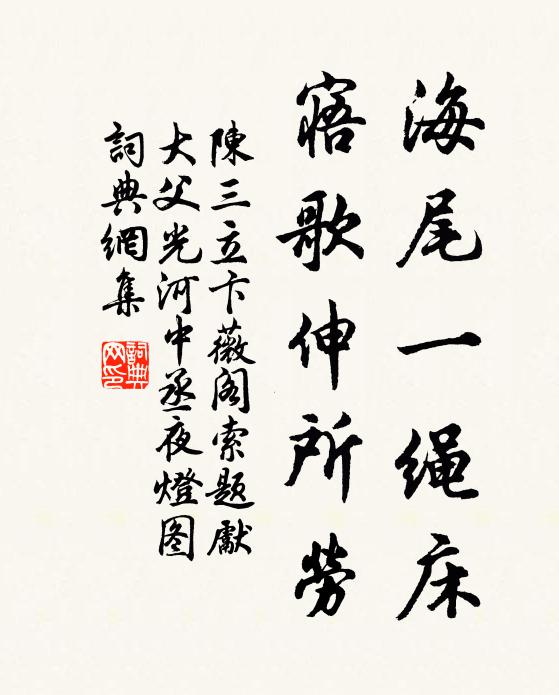 海尾一绳床
寤歌伸所劳
陳三立卞薇阁索题獻
大父光河中丞夜燈图
詞典網集
詞典
网印